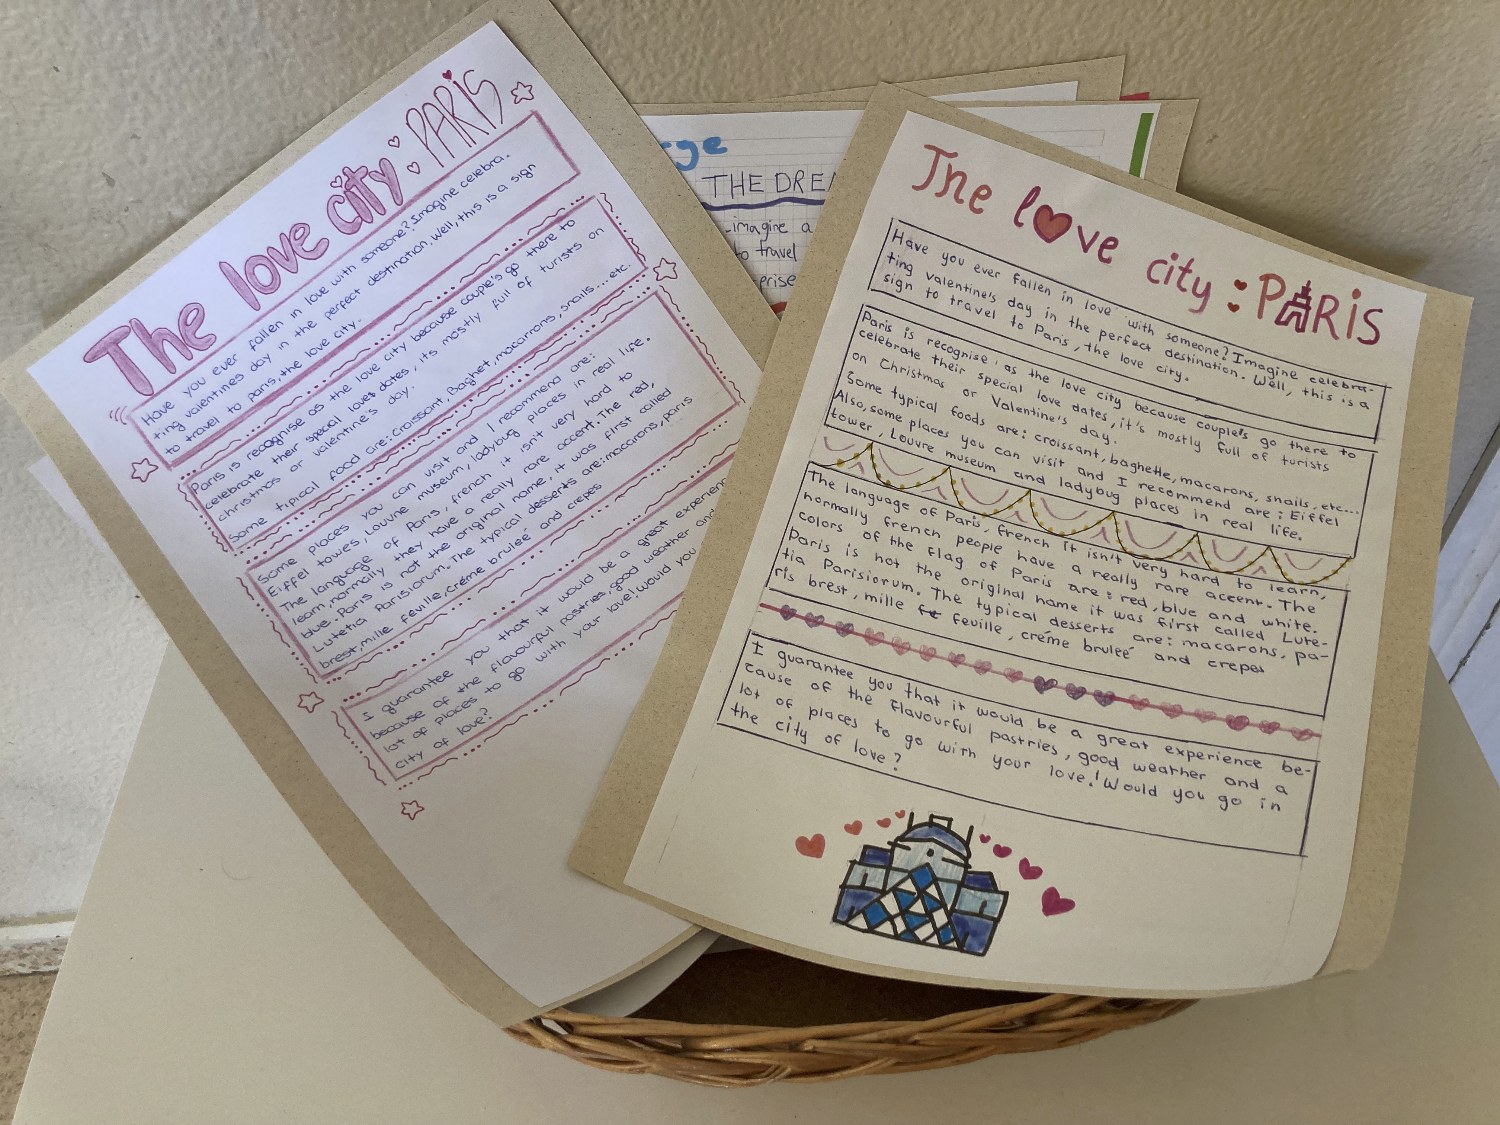 The love city: PARIS
Have you ever fallen in love with someone? Imagine celebra-
ting valentines day in the perfect destination. Well, this is a sign
to travel to paris, the love city.
Paris is recognise as the love city because couple's go there to
celebrate their special loves dates, it's mostly full of turists on
christmas or valentine's day.
Some tipical food are: croissant, Baghet, macarrons, snails....etc.
Some places you can visit and I recommend are:
Eiffel towes, Louvre museum, ladybug places in real life.
The language of Paris, french it isn't very hard to
learn, normally they have a really rare accent. The red,
blue. Paris is not the original name, it was first called
Lutetia Parisiorum. The typical desserts are: macarons, paris
brest, mille feville, créme bruleé and crepes
I guarantee you that it would be a great experienc
because of the flavourful pastries, good weather and
lot of places to go with your love! Would you
city of love?
rge
THE DREA
-imagine a
to travel
prise
The love city: PARIS
Have you ever fallen in love with someone? Imagine celebra-
ting valentine's day in the perfect destination. Well, this is a
sign to travel to Paris, the love city.
Paris is recognise . as the love city because couple's go there to
celebrate their special love dates, it's mostly full of turists
on Christmas or Valentine's day.
Some typical foods are: croissant, baghette, macarons, snails, etc...
Also, some places you can visit and I recommend are: Eiffel
tower, Louvre museum and ladybug places in real life.
The language of Paris, french it isn't very hard to learn,
normally french people have a really rare accent. The
colors of the flag of Paris are: red, blue and white.
Paris is not the original name it was first called Lute-
tia Parisiorum. The typical desserts are: macarons, pa-
ris brest, mille feuille, créme bruleé and crepes
I guarantee you that it would be a great experience be-
cause of the flavourful pastries, good weather and a
lot of places to go with your love! Would you go in
the city of love?